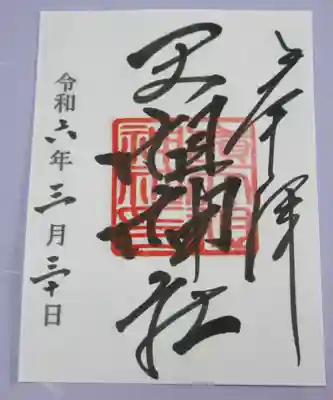 奉拝
天祖神社
令和六年三月三十日